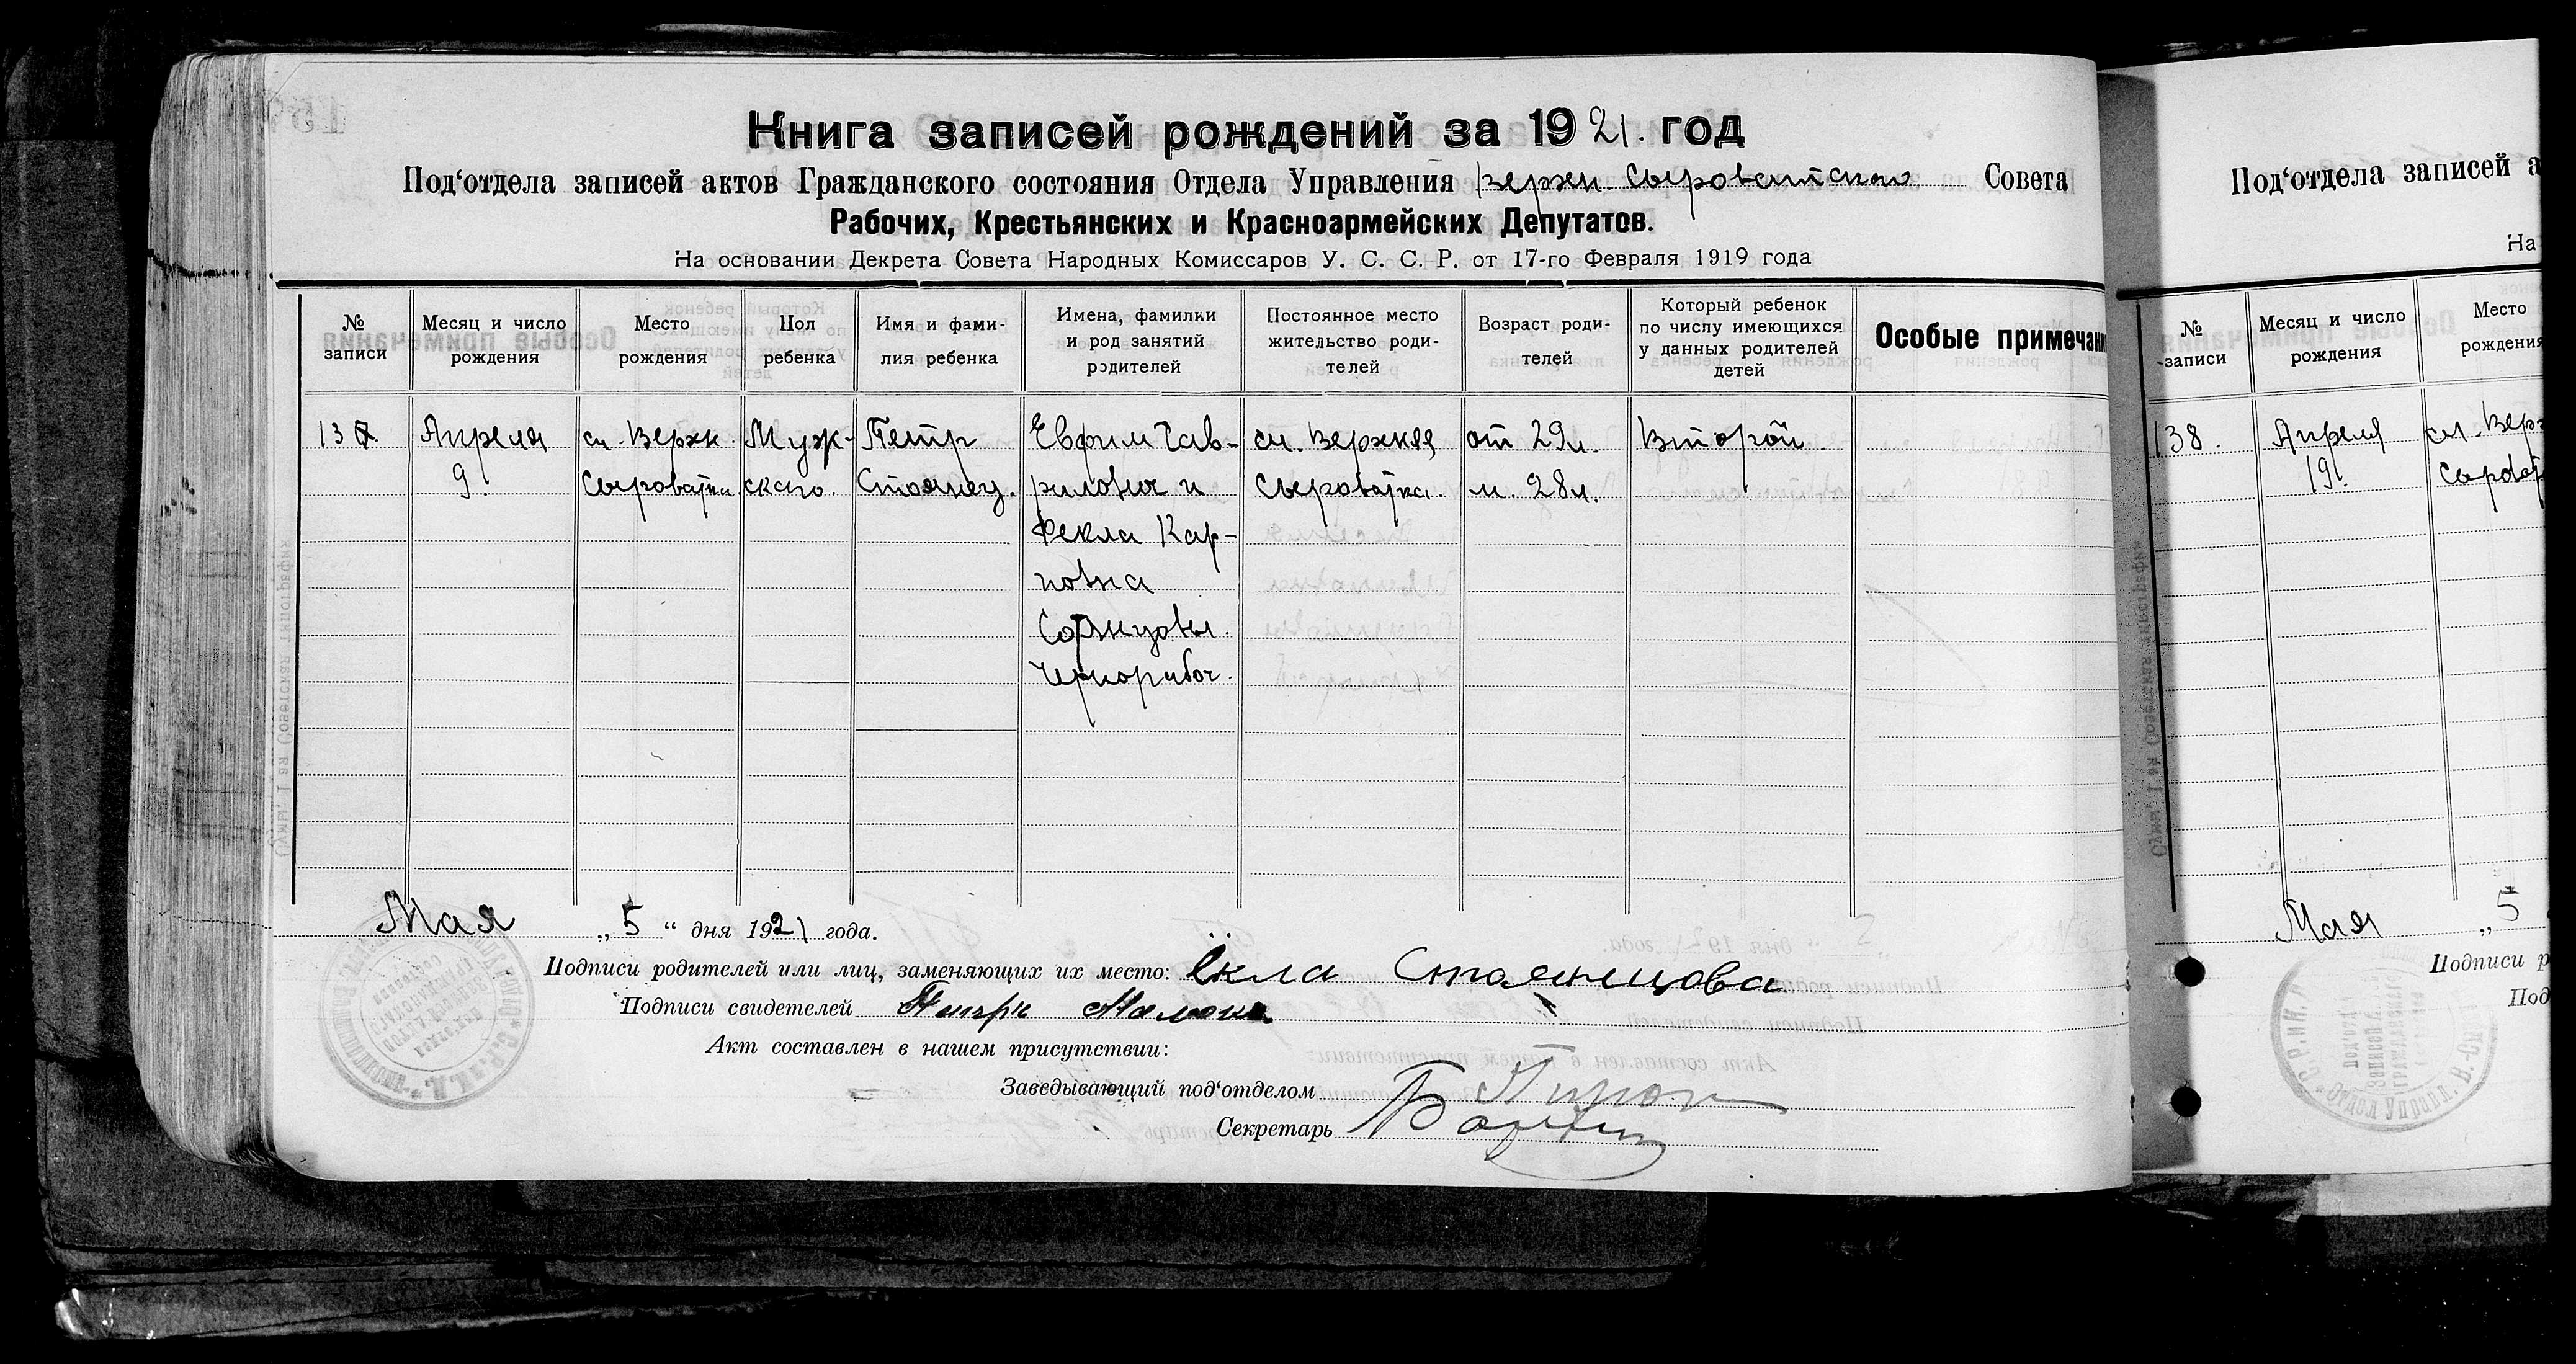 Книга записей рождений за 1921. год
Под‘отдела записей актов Гражданского состояния Отдела Управления Верхн. Сыроватского Совета
Рабочих, Крестьянских и Красноармейских Депутатов.
На основании Декрета Совета Народных Комиссаров У. С. С. Р. от 17-го Февраля 1919 года
№ записи
Месяц и число рождения
Место рождения
Пол ребенка
Имя и фами-
лия ребенка
Имена, фамилии
и род занятий
родителей
Постоянное место
жительство роди-
телей
Возраст роди-
телей
Который ребенок
по числу имеющихся
у данных родителей
детей
Особые примечани
137.
Апреля
9.
сл. Верхн.
Сыроватка.
Муж-
скаго.
Петр
Стоянец.
Ефим Гав-
рилович и
Фекла Кар-
повна
Чернорабоч.
сл. Верхняя
Сыроватка.
от 29л.
м. 28л.
Второй.
Мая „5“ дня 1921 года.
Подписи родителей или лиц, заменяющих их место: Ёкла Стоянцова
Подписи свидетелей
Акт составлен в нашем присутствии:
Заведывающий под‘отделом
Секретарь
Под‘отдела записей а
На
№
записи
Месяц и число
рождения
Место
рождения
138.
Апреля
19.
сл. Верх
Мая „5
Подписи р
Под